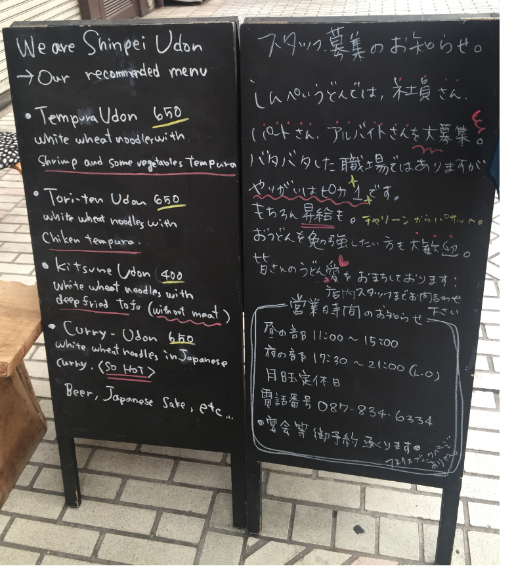 We are Shinpei Udon
→ Our recommended menu
• Tempura Udon 650
white wheat noodles with
Shrimp and some vegetables tempura
• Tori-ten Udon 650
white wheat noodles with
Chiken tempura.
• Kitsune Udon 400
white wheat noodles with
deep fried tofu (without meat)
• Curry-Udon 650
white wheat noodles in Japanese
curry. (So HOT)
Beer, Japanese Sake, etc...
スタッフ募集のお知らせ。
しんぺいうどんでは、社員さん、
パートさん、アルバイトさんを大募集。
バタバタした職場ではありますが
やりがいは世界1です。
もちろん昇給も。
おうどんを勉強したい方も大歓迎。
皆さんのうどん愛をおまちしております!
店内スタッフまでお問合わせ
下さい
営業時間のお知らせ
昼の部 11:00〜15:00
夜の部 17:30〜21:00(L.O)
月曜定休日
電話番号 087-834-6334
宴会等御予約承ります
フェイスブックページ
あります